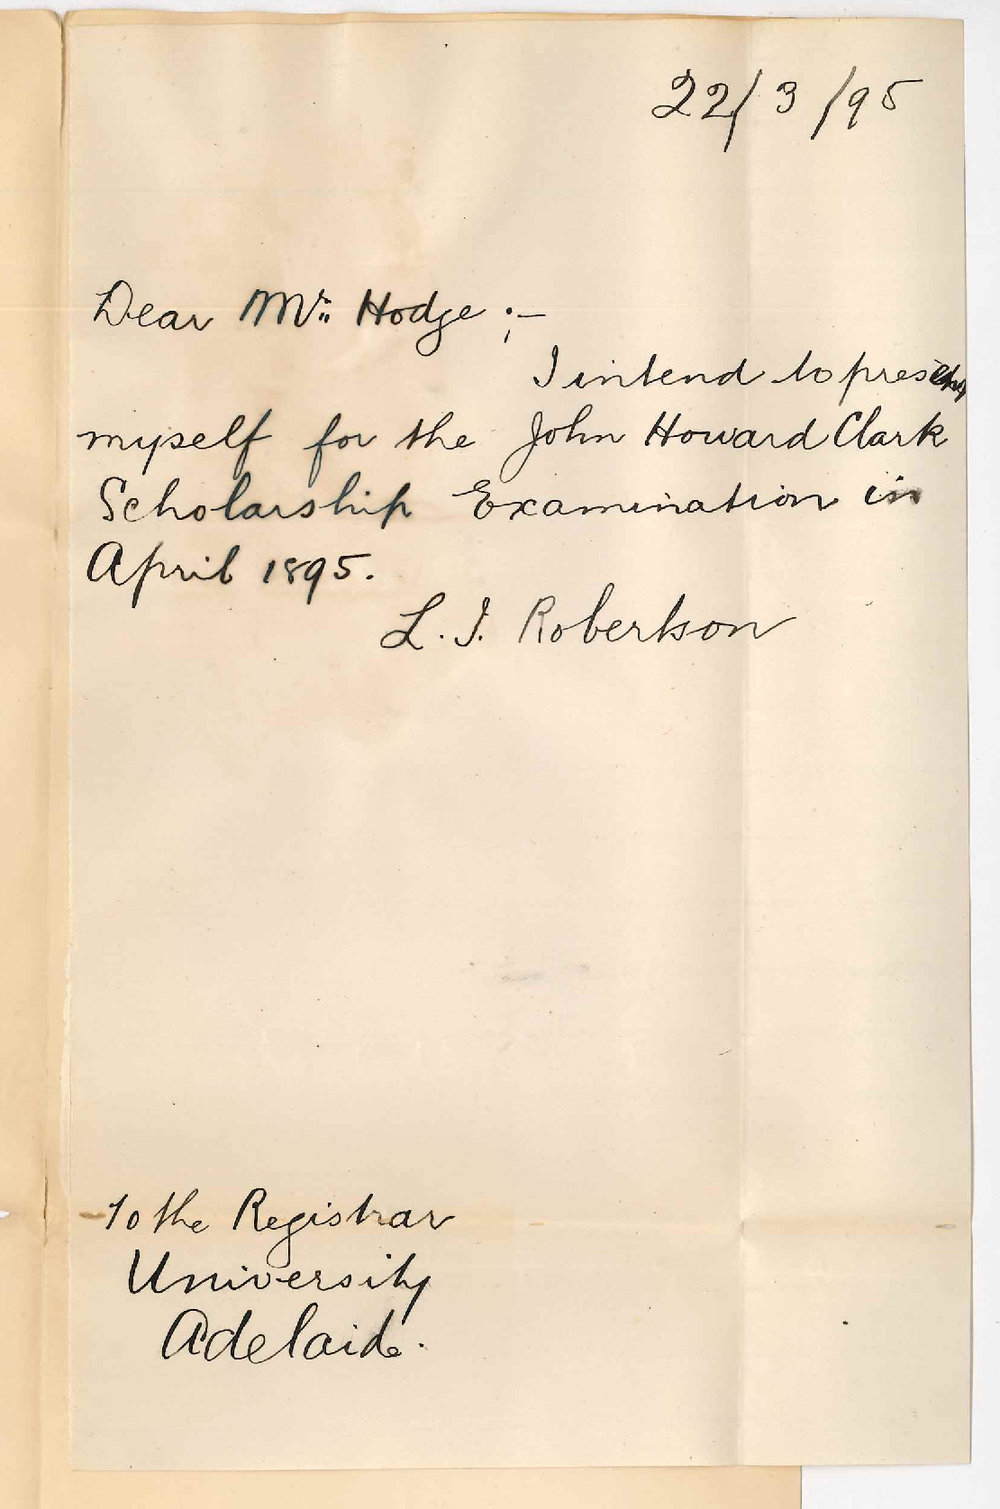 22/3/95
Dear Mr. Hodge :-
I intend to present
myself for the John Howard Clark
Scholarship Examination in
April 1895.
L. J. Robertson
To the Registrar
University
Adelaide.